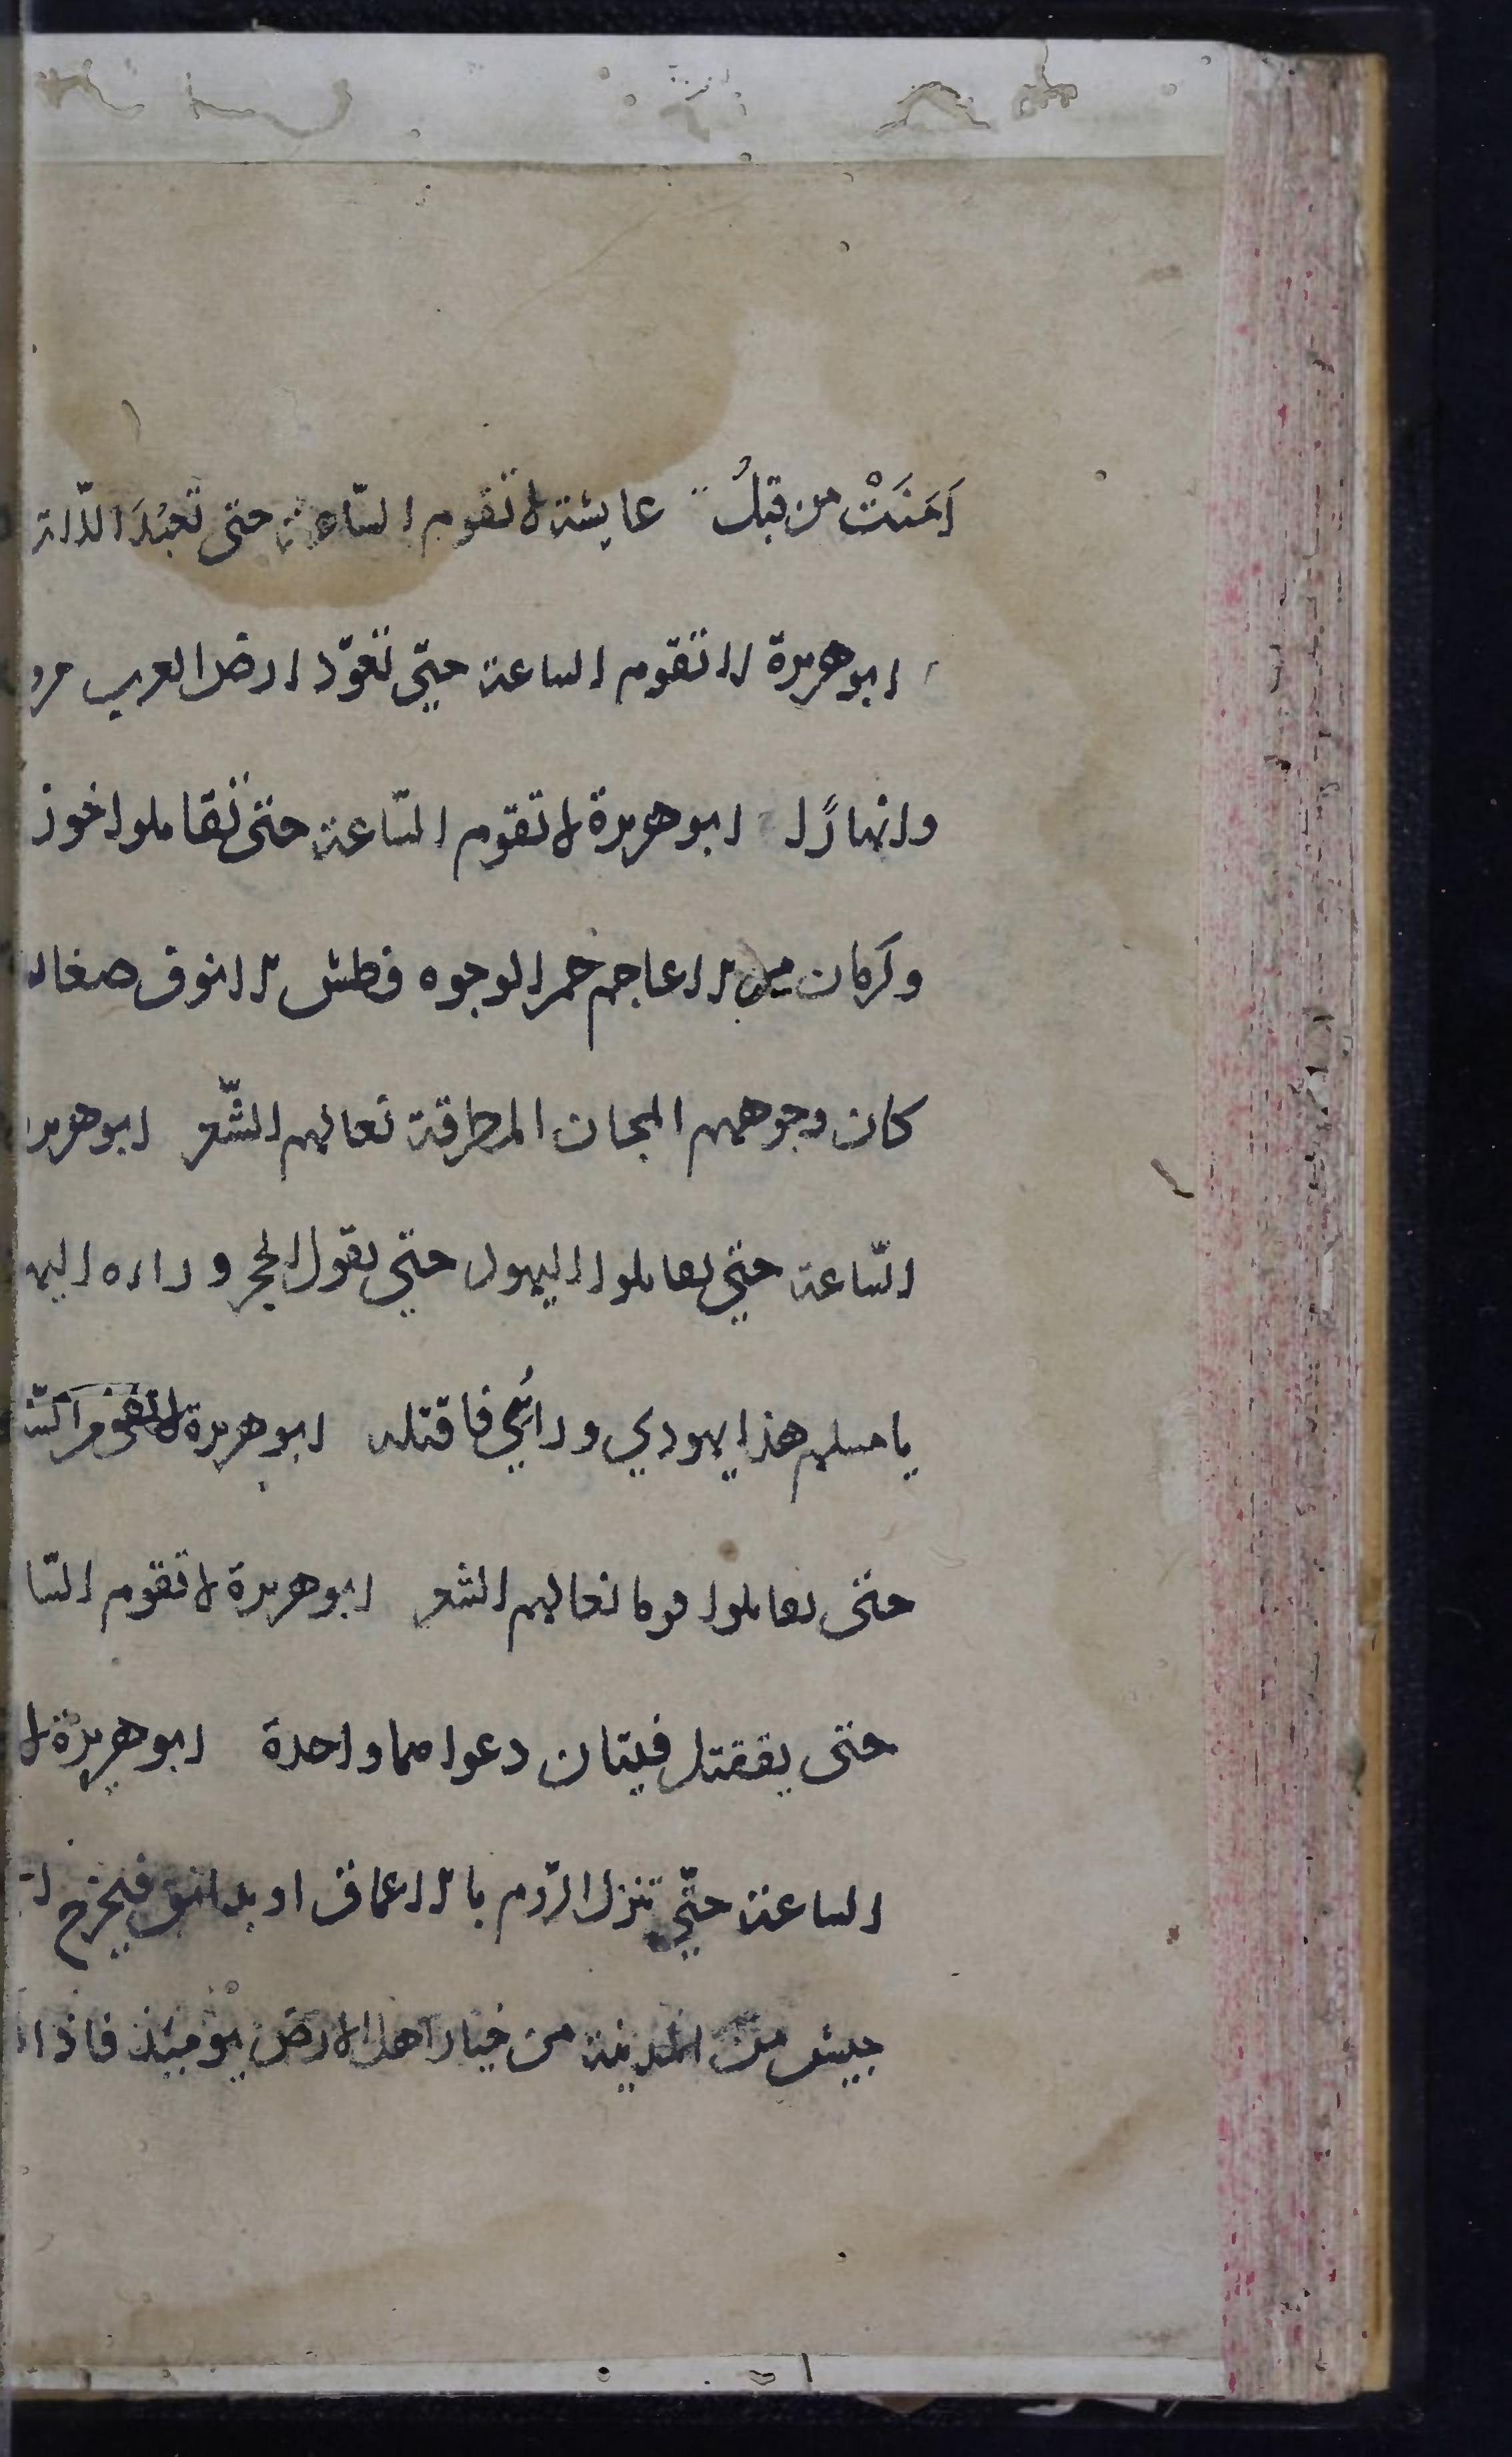 اٰمَنَتْ من قبلُ عايشة لا تقوم السّاعة حتى تُعبَدَ اللّات
ابو هريرة لا تقوم الساعة حتّى تعوّد ارض العرب مرو
وانهارًا ابو هريرة لا تقوم السّاعة حتى تقاتلوا خوز
وكرمان من الاعاجم حمر الوجوه فطس الانوف صغار
كان وجوههم المجان المطرقة نعالهم الشّعر ابو هرير
السّاعة حتى تقاتلوا اليهود حتى يقول الحجر وراءه اليه
يا مسلم هذا يهودي ورائي فاقتله ابو هريرة لا تقوم السّ
حتى تقاتلوا قوما نعالهم الشعر ابو هريرة لا تقوم السّا
حتى يقتتل فيتان دعواهما واحدة ابو هريرة لا
الساعة حتّى تنزل الرّوم بالاعماق او بدابق فيخرج
جيش من المدينة من خيار اهل الارض يومئذ فاذا